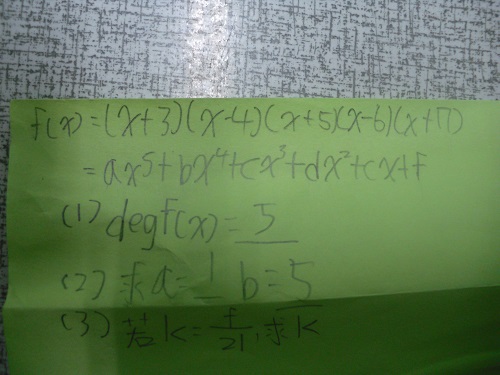 f(x)=(x+3)(x-4)(x+5)(x-6)(x+7)
=ax⁵+bx⁴+cx³+dx²+cx+f
(1) degf(x)=5
(2) 求a=1 b=5
(3) 若k=f/21,求k